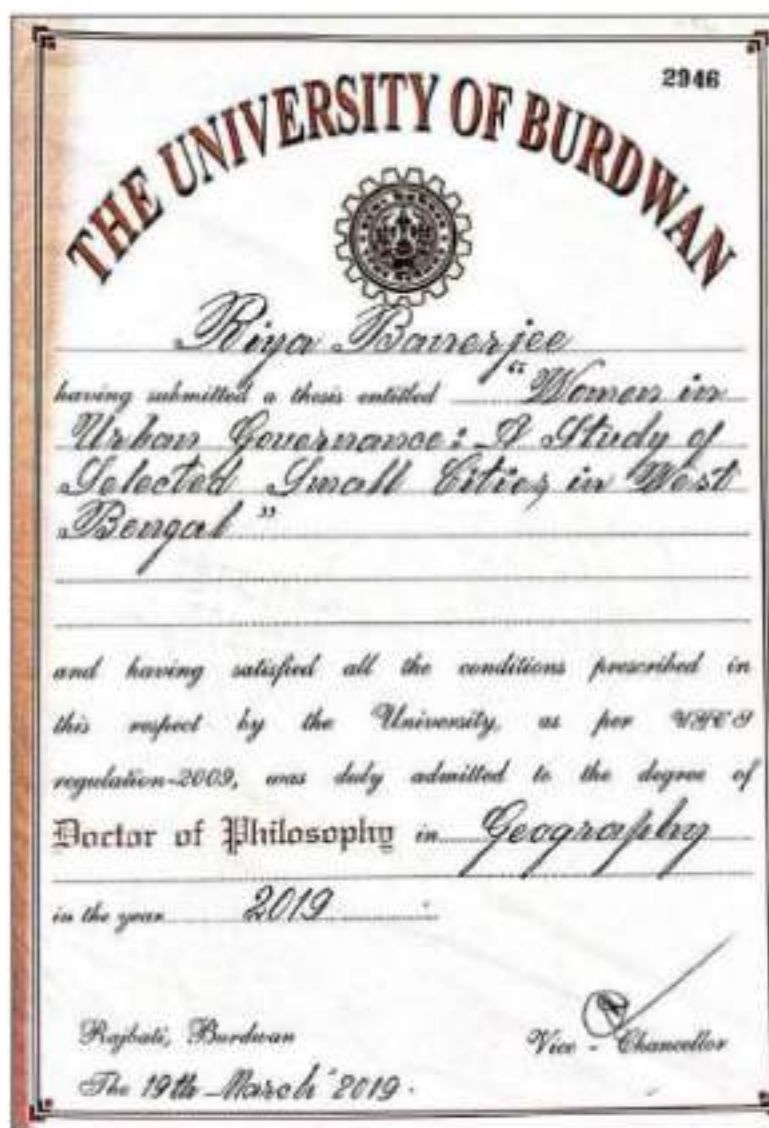 2946
THE UNIVERSITY OF BURDWAN
Riya Banerjee
having submitted a thesis entitled "Women in
Urban Governance: A Study of
Selected Small Cities in West
Bengal"
and having satisfied all the conditions prescribed in
this respect by the University, as per
regulation-2009, was duly admitted to the degree of
Doctor of Philosophy in Geography
in the year 2019
Rajbati, Burdwan
Vice - Chancellor
The 19th March' 2019.